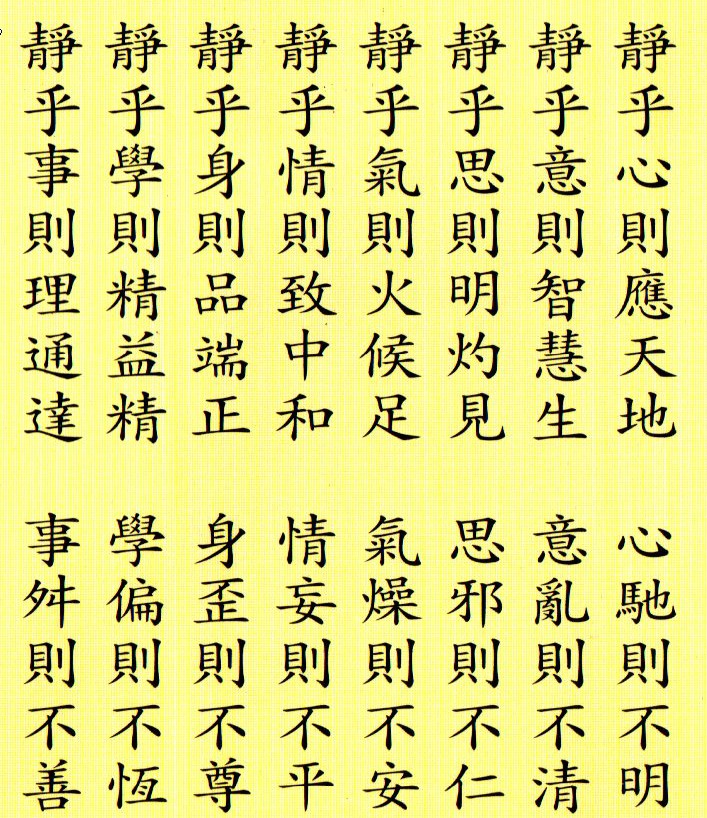 靜乎心則應天地
心馳則不明
靜乎意則智慧生
意亂則不清
靜乎思則明灼見
思邪則不仁
靜乎氣則火候足
氣燥則不安
靜乎情則致中和
情妄則不平
靜乎身則品端正
身歪則不尊
靜乎學則精益精
學偏則不恆
靜乎事則理通達
事舛則不善